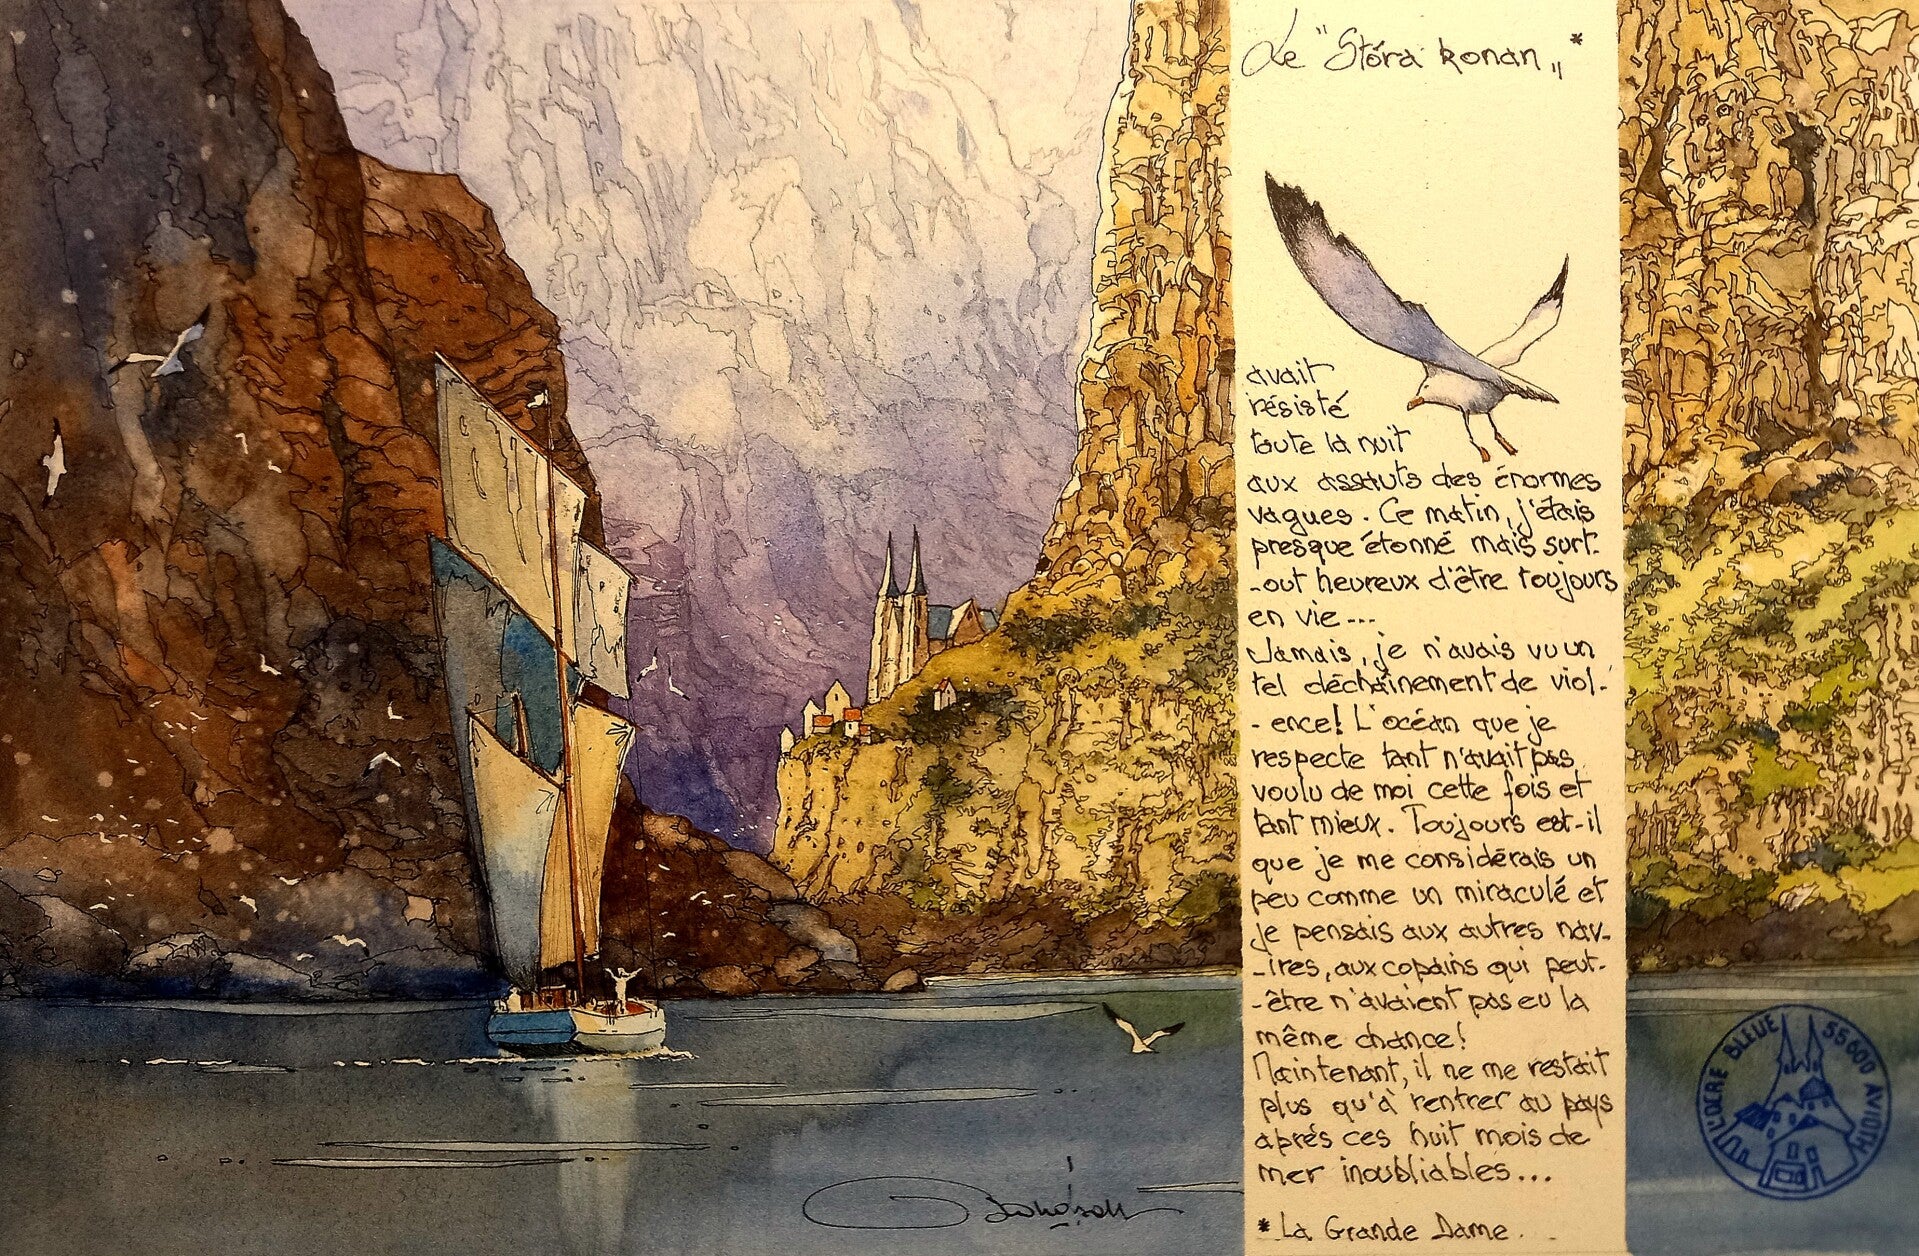 Le "Stóra konan„*
avait
résisté
toute la nuit
aux assauts des énormes
vagues. Ce matin, j'étais
presque étonné mais surt-
-out heureux d'être toujours
en vie---
Jamais, je n'avais vu un
tel déchaînement de viol-
-ence! L'océan que je
respecte tant n'avait pas
voulu de moi cette fois et
tant mieux. Toujours est-il
que je me considérais un
peu comme un miraculé et
je pensais aux autres nav-
-ires, aux copains qui peut-
-être n'avaient pas eu la
même chance!
Maintenant, il ne me restait
plus qu'à rentrer au pays
après ces huit mois de
mer inoubliables...
* La Grande Dame.
BLEUE 55600 AVIOTH